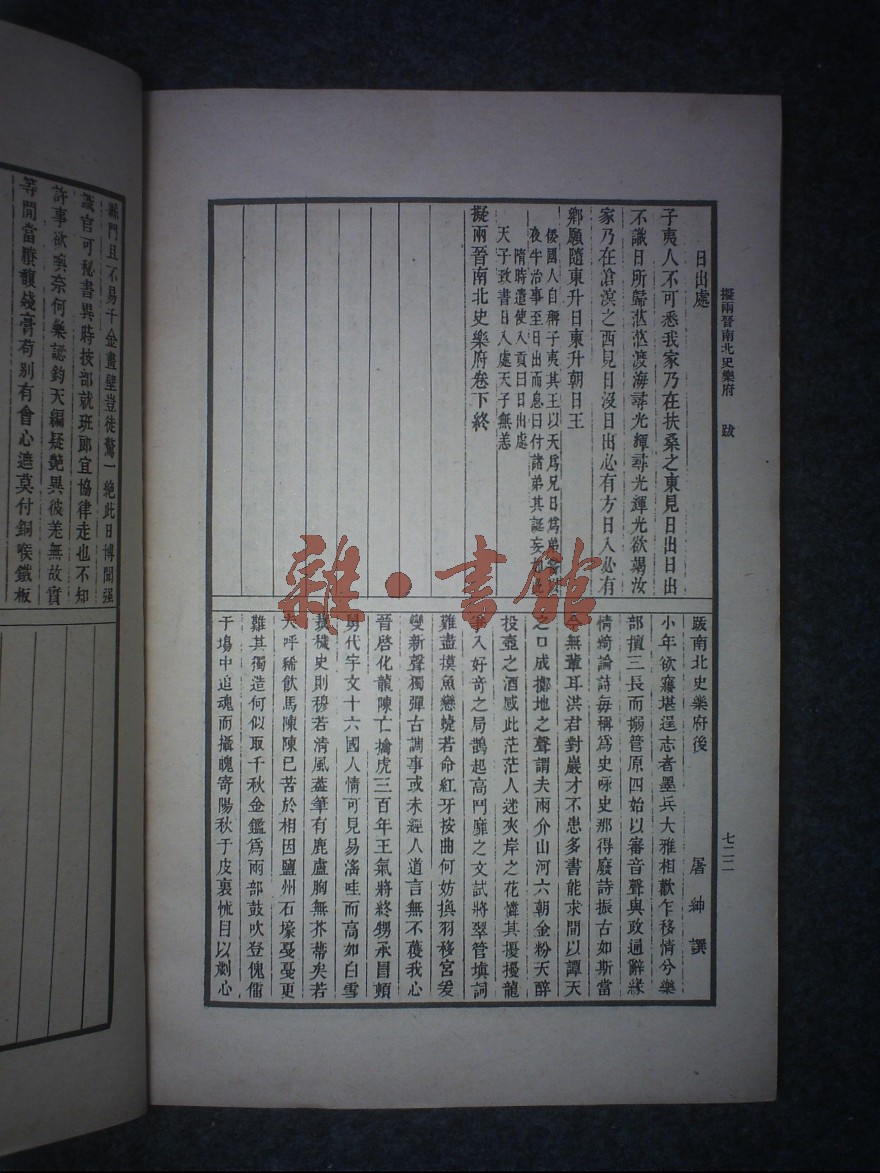 擬兩晉南北史樂府　跋
七二二
日出處
子夷人不可悉我家乃在扶桑之東見日出日出
不識日所歸茫茫渡海尋光輝尋光輝光欲竭汝
家乃在滄溟之西見日沒日出必有方日入必有
鄉願隨東升日東升朝日王
倭國人自稱子夷其王以天為兄日為弟
夜半治事至日出而息曰付諸弟其誕妄如此
隋時遣使入貢曰日出處
天子致書日入處天子無恙
擬兩晉南北史樂府卷下終
跋南北史樂府後
屠紳譔
小年欲癢堪逞志者墨兵大雅相歡乍移情兮樂
部擅三長而搦管原四始以審音聲與政通辭緣
情綺論詩每稱為史咏史那得廢詩振古如斯當
今無輩耳洪君對巖才不患多書能求閒以譚天
之口成擲地之聲謂夫兩介山河六朝金粉天醉
投壺之酒感此茫茫人迷夾岸之花憐其擾擾龍
爭入好奇之局鵲起高門靡之文試將翠管填詞
難盡摸魚戀蜨若命紅牙按曲何妨換羽移宮爰
變新聲獨彈古調事或未經人道言無不蒦我心
晉啓化龍陳亡擒虎三百年王氣將終甥承冒頓
男代宇文十六國人情可見易濡哇而高如白雪
裁穢史則穆若清風蓋筆有鹿盧胸無芥蔕矣若
夫呼稀飲馬陳陳已苦於相因鹽州石壕戞戞更
難其獨造何似取千秋金鑑為兩部鼓吹登傀儡
于場中追魂而攝魄寄陽秋于皮裏怵目以劌心
縣門且不易千金畫壁豈徒驚一絕此日博聞强
識官可秘書異時按部就班郎宜協律走也不知
許事欲喚奈何樂認鈞天編疑艷異彼羌無故實
等閒當賸馥殘膏苟别有會心造莫付銅喉鐵板
雜·書館